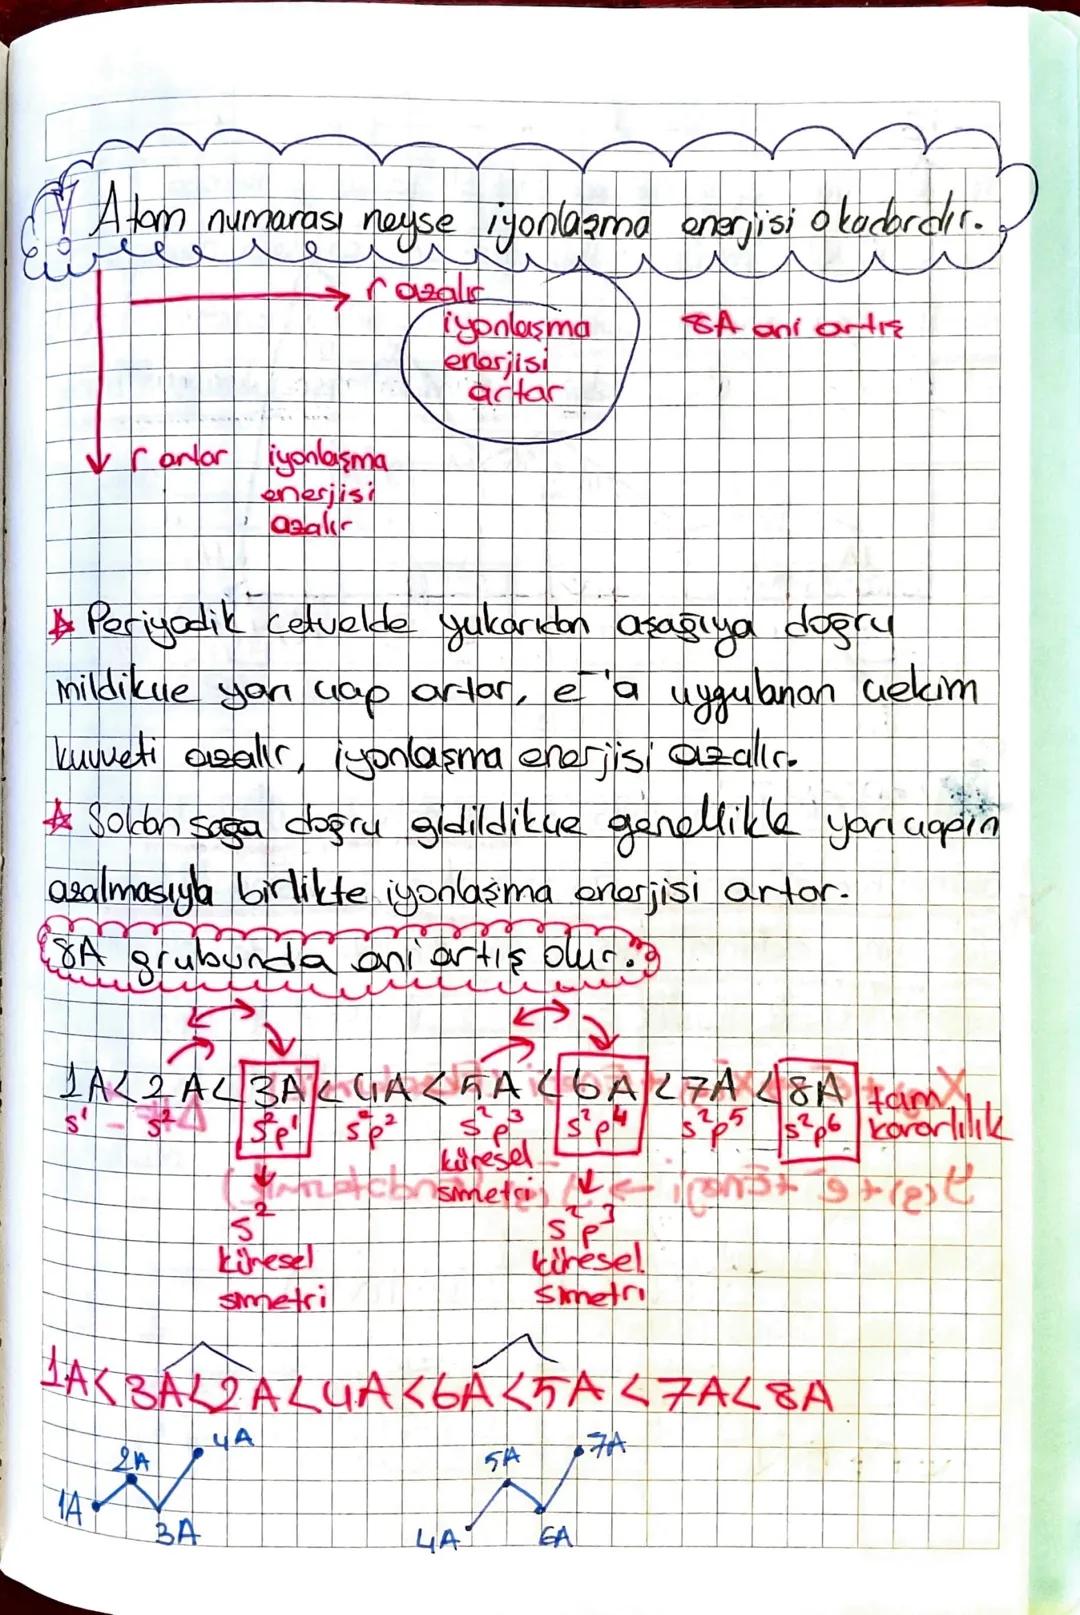 ! Atom numarası neyse iyonlaşma enerjisi o kadardır.
r azalır
iyonlaşma
enerjisi
artar
8A ani artış
r artar iyonlaşma
enerjisi
azalır
Periyodik cetvelde yukarıdan aşağıya doğru
inildikçe yarı çap artar, e⁻'a uygulanan çekim
kuvveti azalır, iyonlaşma enerjisi azalır.
Soldan sağa doğru gidildikçe genellikle yarıçapın
azalmasıyla birlikte iyonlaşma enerjisi artar.
8A grubunda ani artış olur.
1A < 2A < 3A < 4A < 5A < 6A < 7A < 8A tam
s¹ s² s²p¹ s²p² s²p³ s²p⁴ s²p⁵ s²p⁶ kararlılık
küresel
simetri
s² s²p³
küresel küresel
simetri simetri
1A < 3A < 2A < 4A < 6A < 5A < 7A < 8A
1A 2A 3A 4A
4A 5A 6A 7A